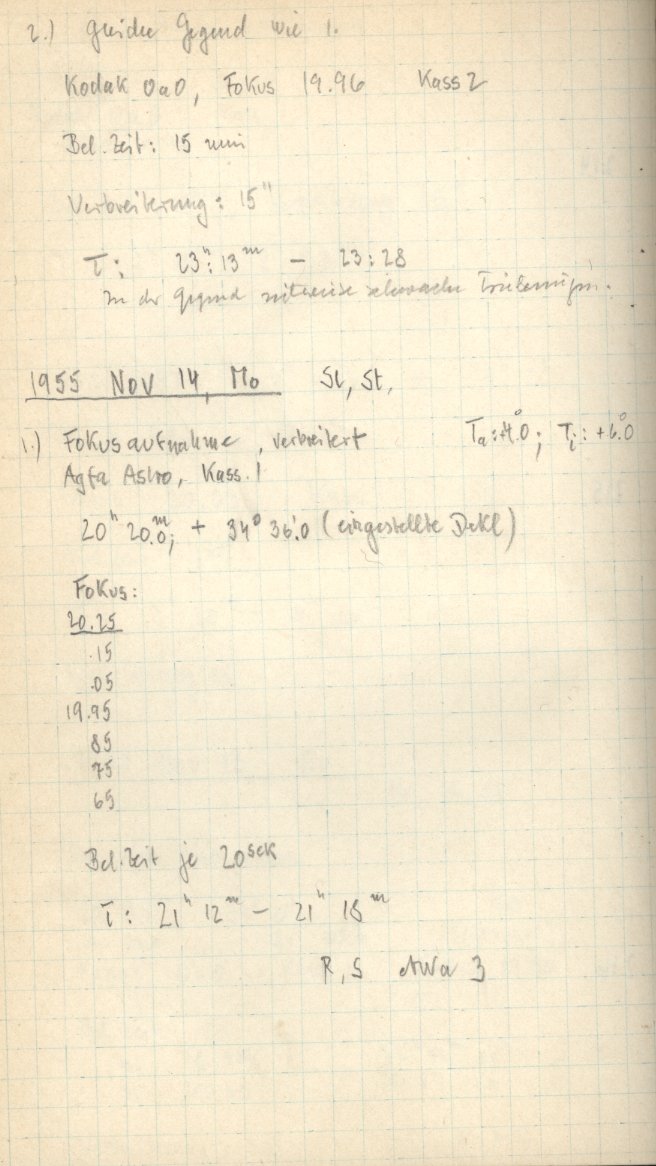 2.) gleiche Gegend wie 1.
Kodak OaO, Fokus 19.96 Kass 2
Bel. Zeit: 15 min
Verbreiterung: 15"
T: 23ʰ:13ᵐ – 23:28
In der Gegend zeitweise schwache Trübungen.
1955 Nov 14, Mo Sl, St.
1.) Fokusaufnahme, verbreitert Tₐ: +4.°0; Tᵢ: +6.°0
Agfa Astro, Kass. 1
20ʰ 20.ᵐ0; + 34° 36.'0 (eingestellte Dekl)
Fokus:
20.25
.15
.05
19.95
85
75
65
Bel. Zeit je 20 sek
T: 21ʰ 12ᵐ – 21ʰ 18ᵐ
R, S 3